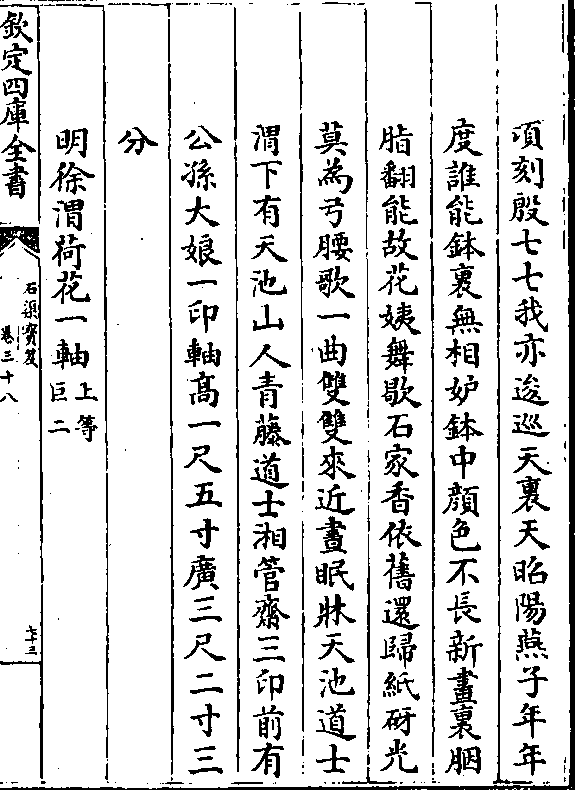 頃刻殷七七我亦逡巡天裏天昭陽燕子年年
度誰能鉢裏無相妒鉢中顔色不長新畫裏胭
脂翻能故花姨舞歇石家香依舊還歸紙硏光
莫為弓腰歌一曲雙雙來近晝眠牀天池道士
渭下有天池山人青藤道士湘管齋三印前有
公孫大娘一印軸髙一尺五寸廣三尺二寸三
分
明徐渭荷花一軸上等
巨二
欽定四庫全書
石渠寶笈
卷三十八